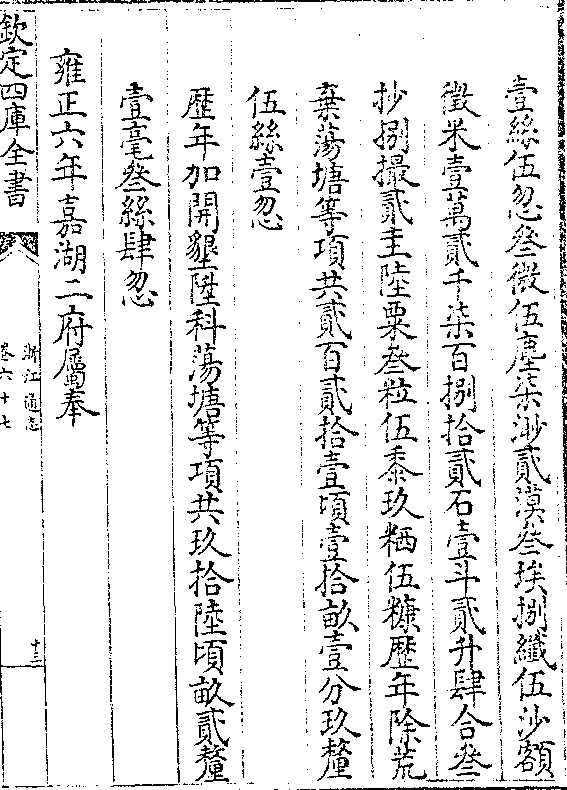 壹絲伍忽叁微伍塵柒渺貳漠叁埃捌纖伍沙額
徵米壹萬貳千柒百捌拾貳石壹斗貳升肆合叁
抄捌撮貳圭陸粟叁粒伍黍玖粞伍糠歴年除荒
棄蕩塘等項共貳百貳拾壹頃壹拾畝壹分玖釐
伍絲壹忽
歴年加開墾陞科蕩塘等項共玖拾陸頃畝貳釐
壹毫叁絲肆忽
雍正六年嘉湖二府屬奉
欽定四庫全書
浙江通志
卷六十七
十三